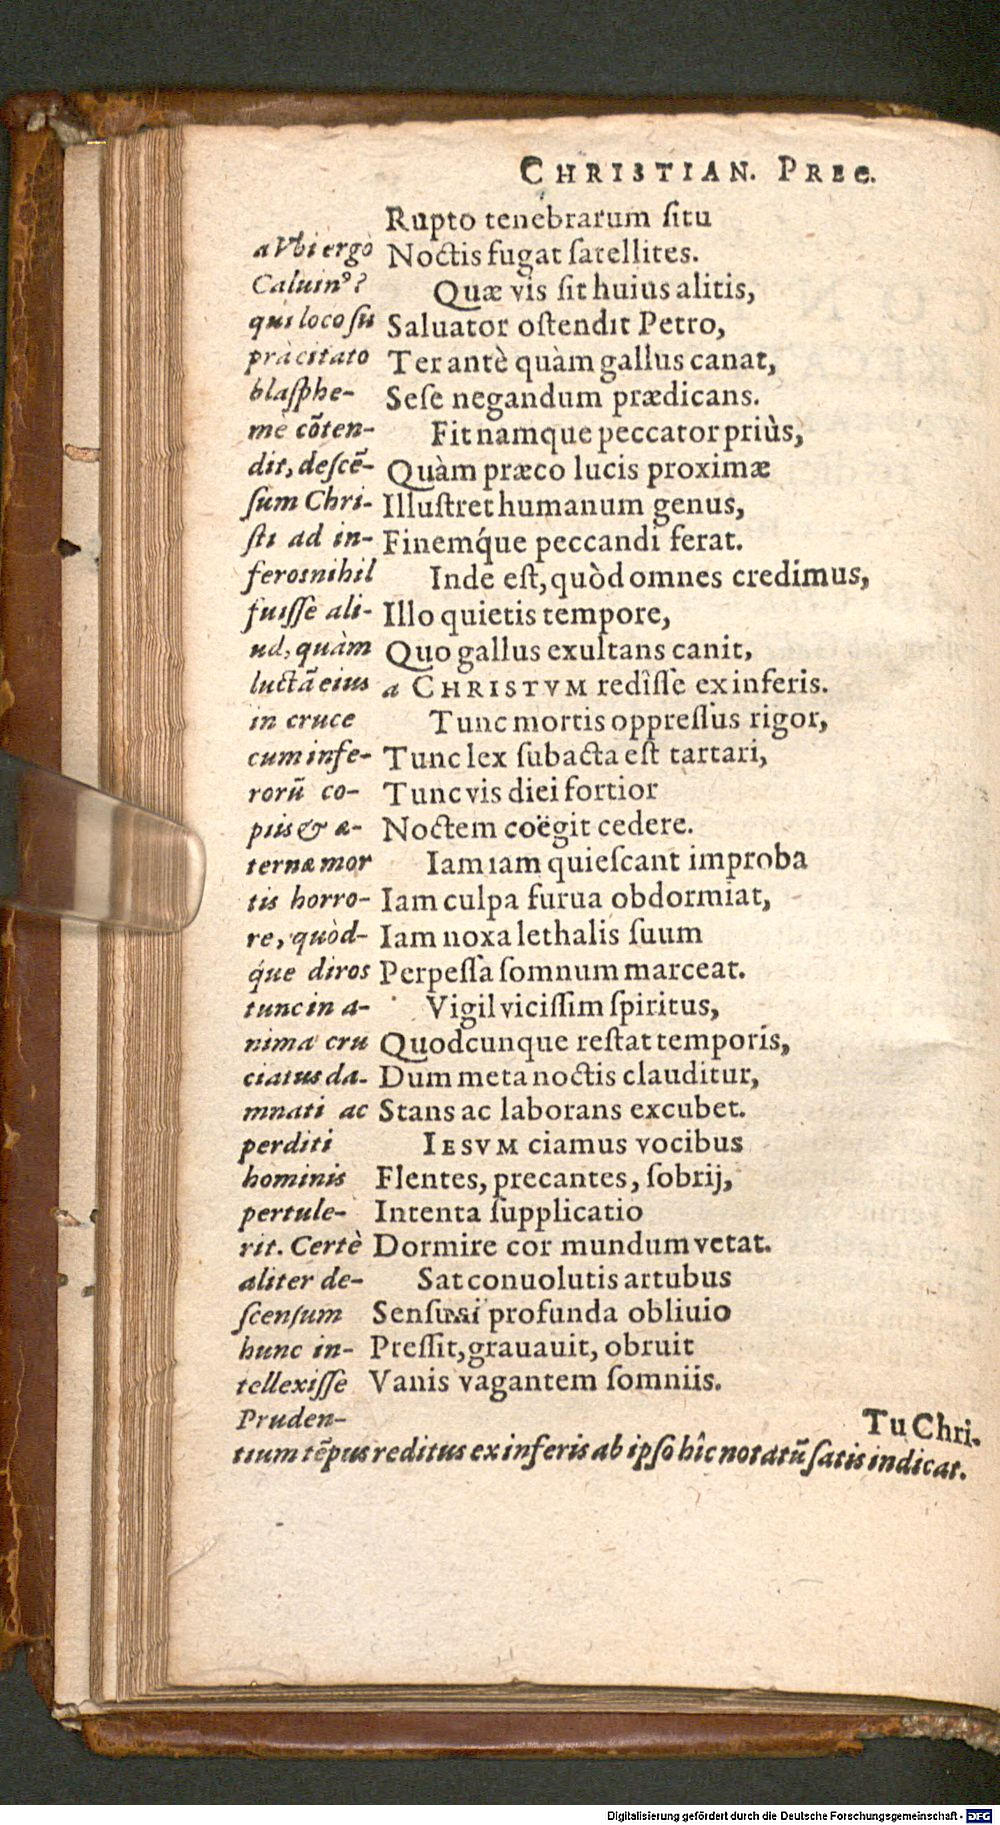 CHRISTIAN. PREC.
Rupto tenebrarum ſitu
Noctis fugat ſatellites.
Quæ vis ſit huius alitis,
Saluator oſtendit Petro,
Ter antè quàm gallus canat,
Seſe negandum prædicans.
Fit namque peccator priùs,
Quàm præco lucis proximæ
Illuſtret humanum genus,
Finemq́ue peccandi ferat.
Inde eſt, quòd omnes credimus,
Illo quietis tempore,
Quo gallus exultans canit,
a CHRISTVM redîſſe ex inferis.
Tunc mortis oppreſſus rigor,
Tunc lex ſubacta eſt tartari,
Tunc vis diei fortior
Noctem coëgit cedere.
Iam iam quieſcant improba
Iam culpa furua obdormiat,
Iam noxa lethalis ſuum
Perpeſſa ſomnum marceat.
Vigil viciſſim ſpiritus,
Quodcunque reſtat temporis,
Dum meta noctis clauditur,
Stans ac laborans excubet.
IESVM ciamus vocibus
Flentes, precantes, ſobrij,
Intenta ſupplicatio
Dormire cor mundum vetat.
Sat conuolutis artubus
profunda obliuio
Preſſit, grauauit, obruit
Vanis vagantem ſomniis.
Tu Chri-
a Vbi ergò
Caluinꝰ?
qui loco ſu
præcitato
blaſphe-
mè cõten-
dit, deſcẽ-
ſum Chri-
ſti ad in-
feros nihil
fuiſſe ali-
ud, quàm
luctã eius
in cruce
cum infe-
rorũ co-
piis & æ-
ternæ mor
tis horro-
re, quòd-
q́ue diros
tunc in a-
nima cru
ciatus da-
mnati ac
perditi
hominis
pertule-
rit. Certè
aliter de-
ſcenſum
hunc in-
tellexiſſe
Pruden-
tium tẽpus reditus ex inferis ab ipſo hîc notatũ ſatis indicat.
Digitalisierung gefördert durch die Deutsche Forschungsgemeinschaft - DFG